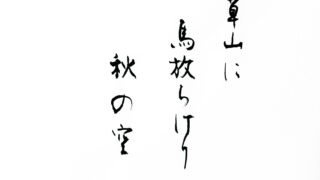 草山に
馬放ちけり
秋の空